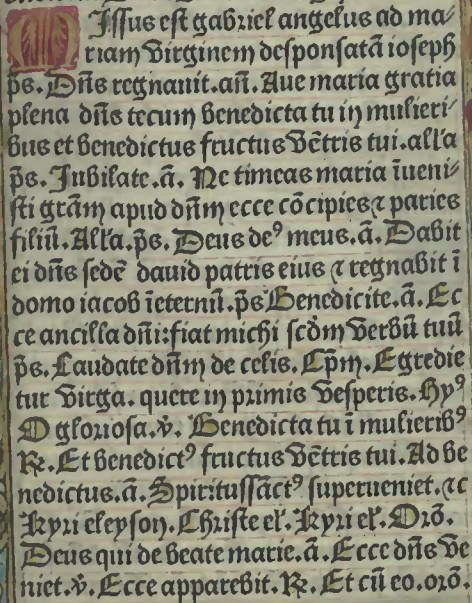 Missus est gabriel angelus ad ma/
riam virginem desponsatā ioseph
p̄s. Dn̄s regnauit. an̄. Aue maria gratia
plena dn̄s tecum benedicta tu in mulieri/
bus et benedictus fructus vētris tui. all'a
p̄s. Jubilate. ā. Ne timeas maria īueni/
sti grām apud dn̄m ecce cōcipies ⁊ paries
filiū. All'a. p̄s. Deus deꝰ meus. ā. Dabit
ei dn̄s sedē dauid patris eius ⁊ regnabit ī
domo iacob īeternū. p̄s Benedicite. ā. Ec
ce ancilla dn̄i: fiat michi scd̄m verbū tuū
p̄s. Laudate dn̄m de celis. Cp̄m. Egredie
tur virga. quere in primis vesperis. Hyꝰ
O gloriosa. v̄. Benedicta tu ī mulieribꝰ
℟. Et benedictꝰ fructus vētris tui. Ad be
nedictus. ā. Spiritussāctꝰ superueniet. ⁊c
Kyri eleyson. Christe el'. Kyri el'. Orō.
Deus qui de beate marie. ā. Ecce dn̄s ve
niet. v̄. Ecce apparebit. ℟. Et cū eo. orō.